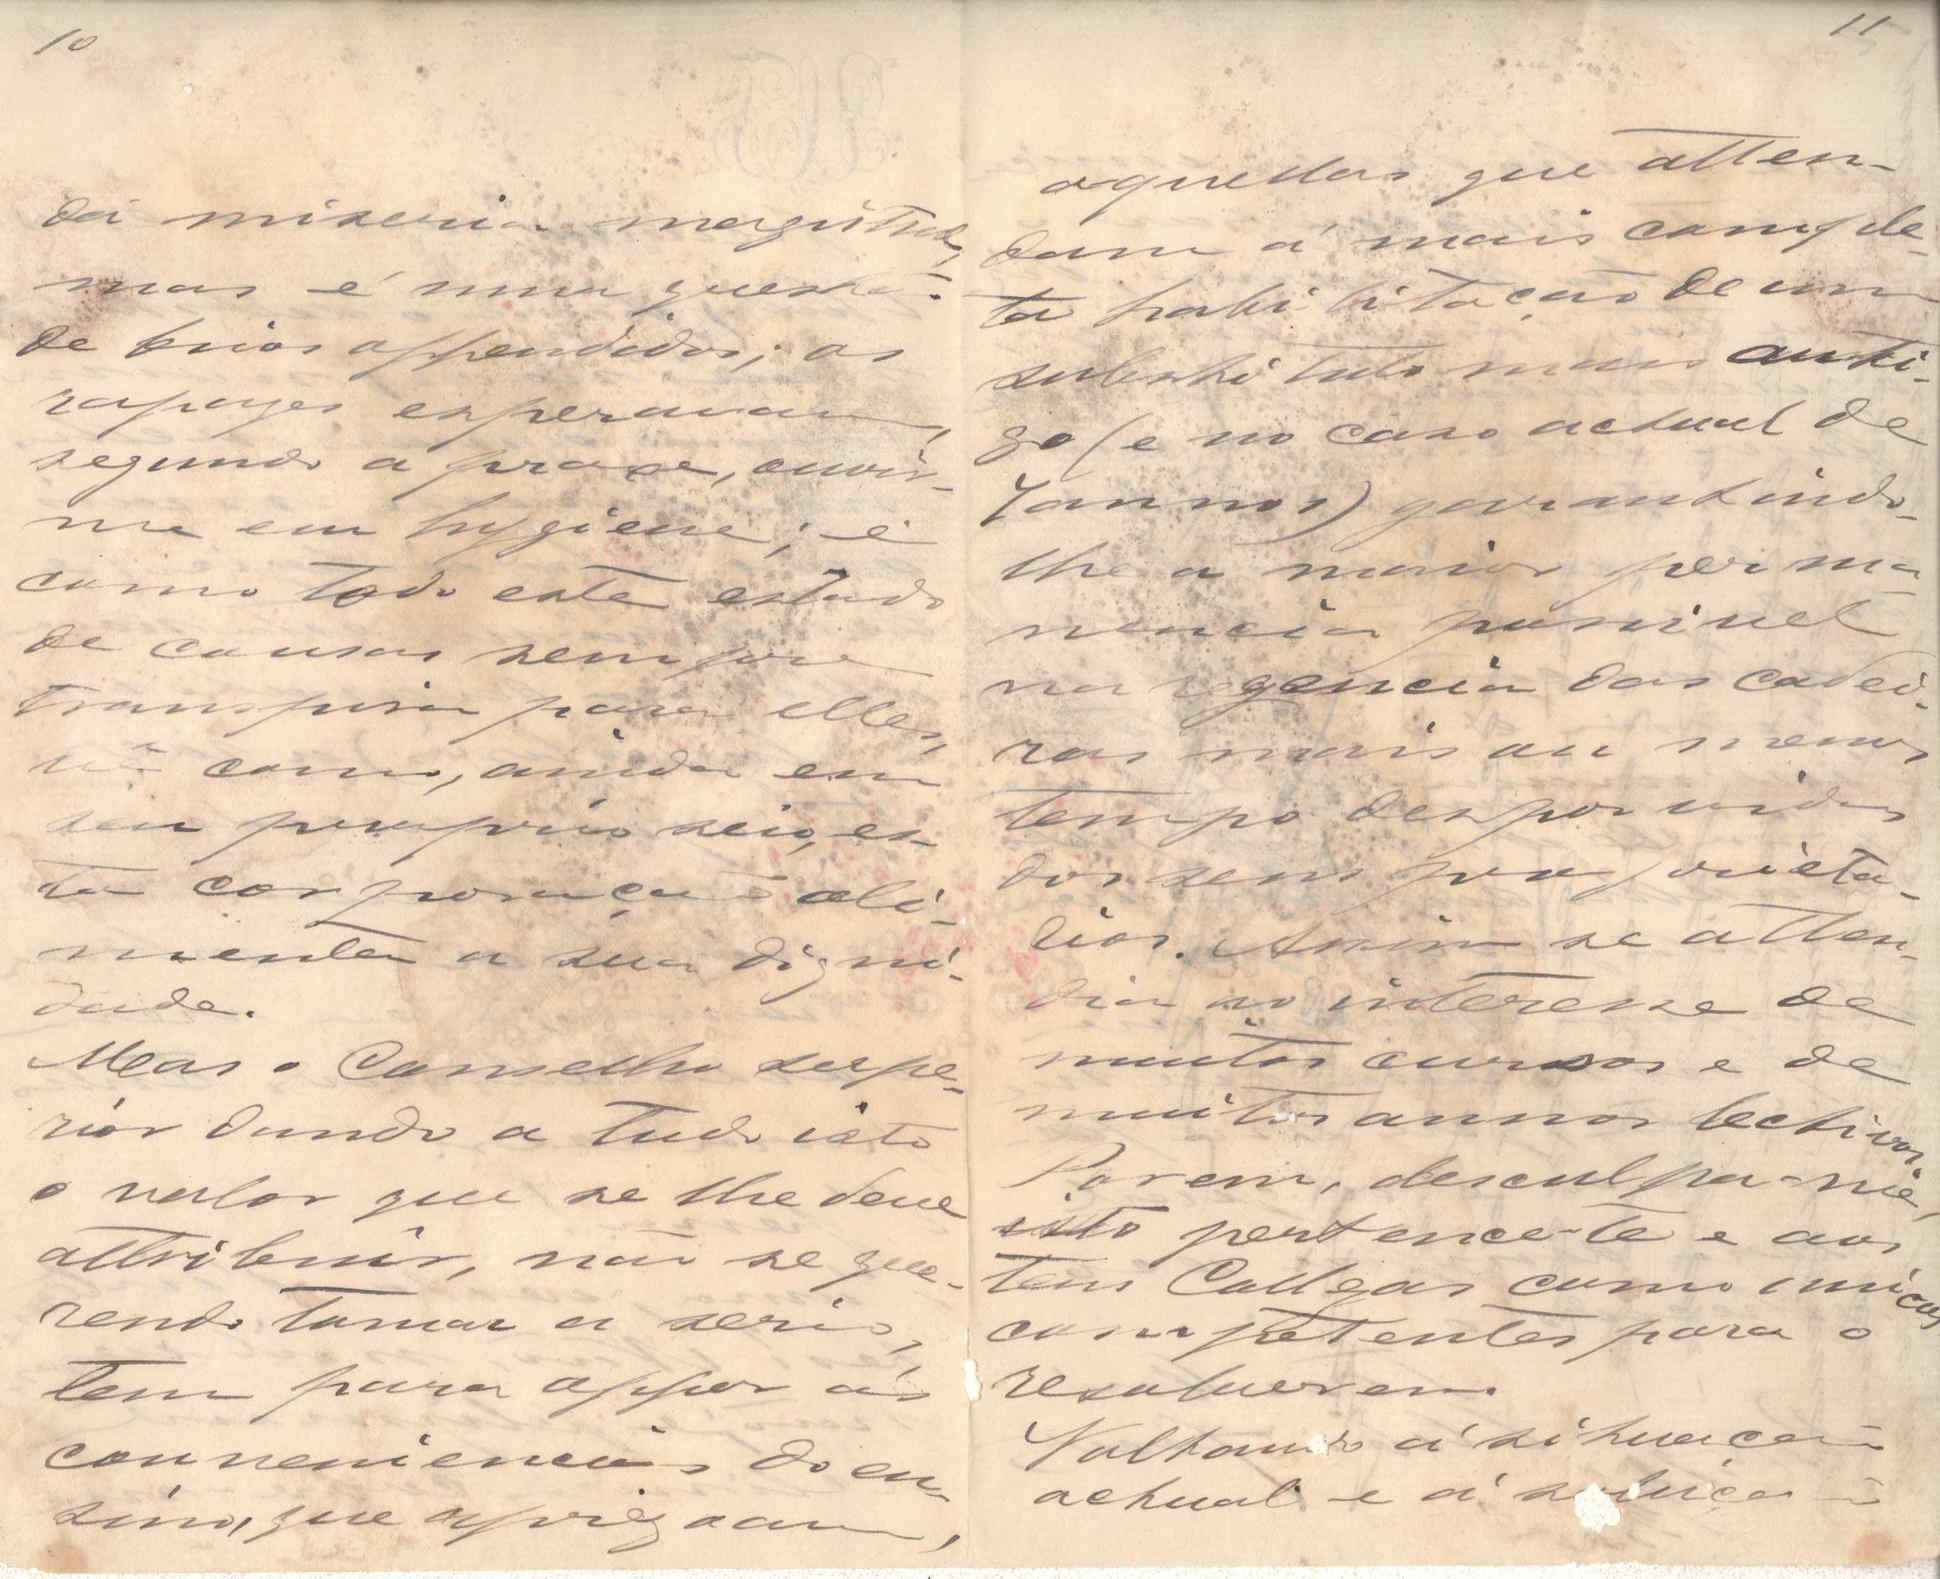 10
da miseria magistral,
mas é uma questão
de brios offendidos; os
rapazes esperavam,
segundo a praxe, ouvir-
me em hygiene; e
como todo este estado
de cousas sempre
transpira para elles,
vê como, ainda em
seu proprio seio, es-
ta corporação ali-
menta a sua digni-
dade.
Mas o Conselho supe-
rior dando a tudo isto
o valor que se lhe deve
attribuir, não se que-
rendo tomar a serio,
tem para oppor ás
conveniencias do en-
sino, que apregoam,
11
aquellas que atten-
dam á mais comple-
ta habilitação de um
substituto mais anti-
go (e no caso actual de
7 annos) garantindo-
lhe a maior perma-
nencia possivel
na regencia das cadei-
ras mais ou menos
tempo desprovidas
dos seus proprieta-
rios. Assim se atten-
dia ao interesse de
muitos cursos e de
muitos annos lectivos.
Porem, desculpa-me,
isto pertence-te e aos
teus Collegas como unicos
competentes para o
resolverem.
Voltando á situação
actual e á solução